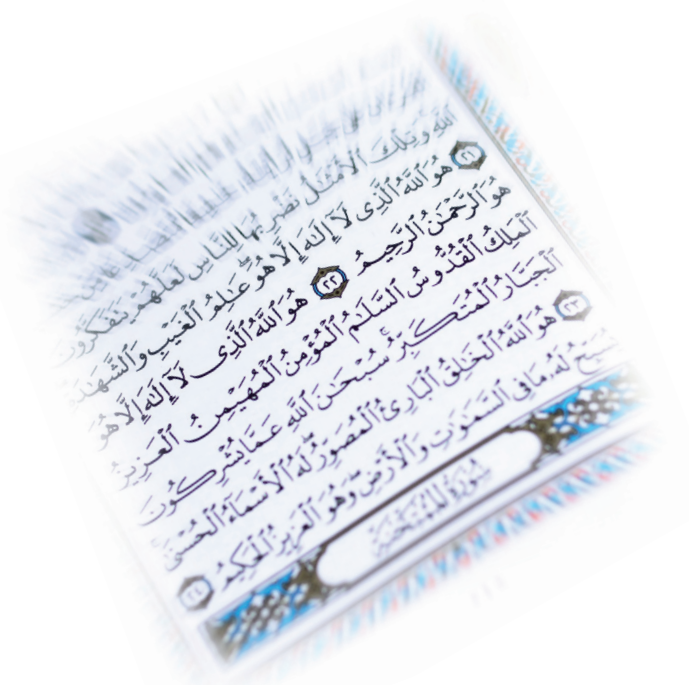 ٱللَّهِ وَتِلْكَ ٱلْأَمْثَٰلُ نَضْرِبُهَا لِلنَّاسِ لَعَلَّهُمْ يَتَفَكَّرُونَ
٢١ هُوَ ٱللَّهُ ٱلَّذِى لَآ إِلَٰهَ إِلَّا هُوَ عَٰلِمُ ٱلْغَيْبِ وَٱلشَّهَٰدَةِ
هُوَ ٱلرَّحْمَٰنُ ٱلرَّحِيمُ ٢٢ هُوَ ٱللَّهُ ٱلَّذِى لَآ إِلَٰهَ إِلَّا هُوَ
ٱلْمَلِكُ ٱلْقُدُّوسُ ٱلسَّلَٰمُ ٱلْمُؤْمِنُ ٱلْمُهَيْمِنُ ٱلْعَزِيزُ
ٱلْجَبَّارُ ٱلْمُتَكَبِّرُ سُبْحَٰنَ ٱللَّهِ عَمَّا يُشْرِكُونَ
٢٣ هُوَ ٱللَّهُ ٱلْخَٰلِقُ ٱلْبَارِئُ ٱلْمُصَوِّرُ لَهُ ٱلْأَسْمَآءُ ٱلْحُسْنَىٰ
يُسَبِّحُ لَهُۥ مَا فِى ٱلسَّمَٰوَٰتِ وَٱلْأَرْضِ وَهُوَ ٱلْعَزِيزُ ٱلْحَكِيمُ ٢٤
سُورَةُ المُمْتَحنَةِ